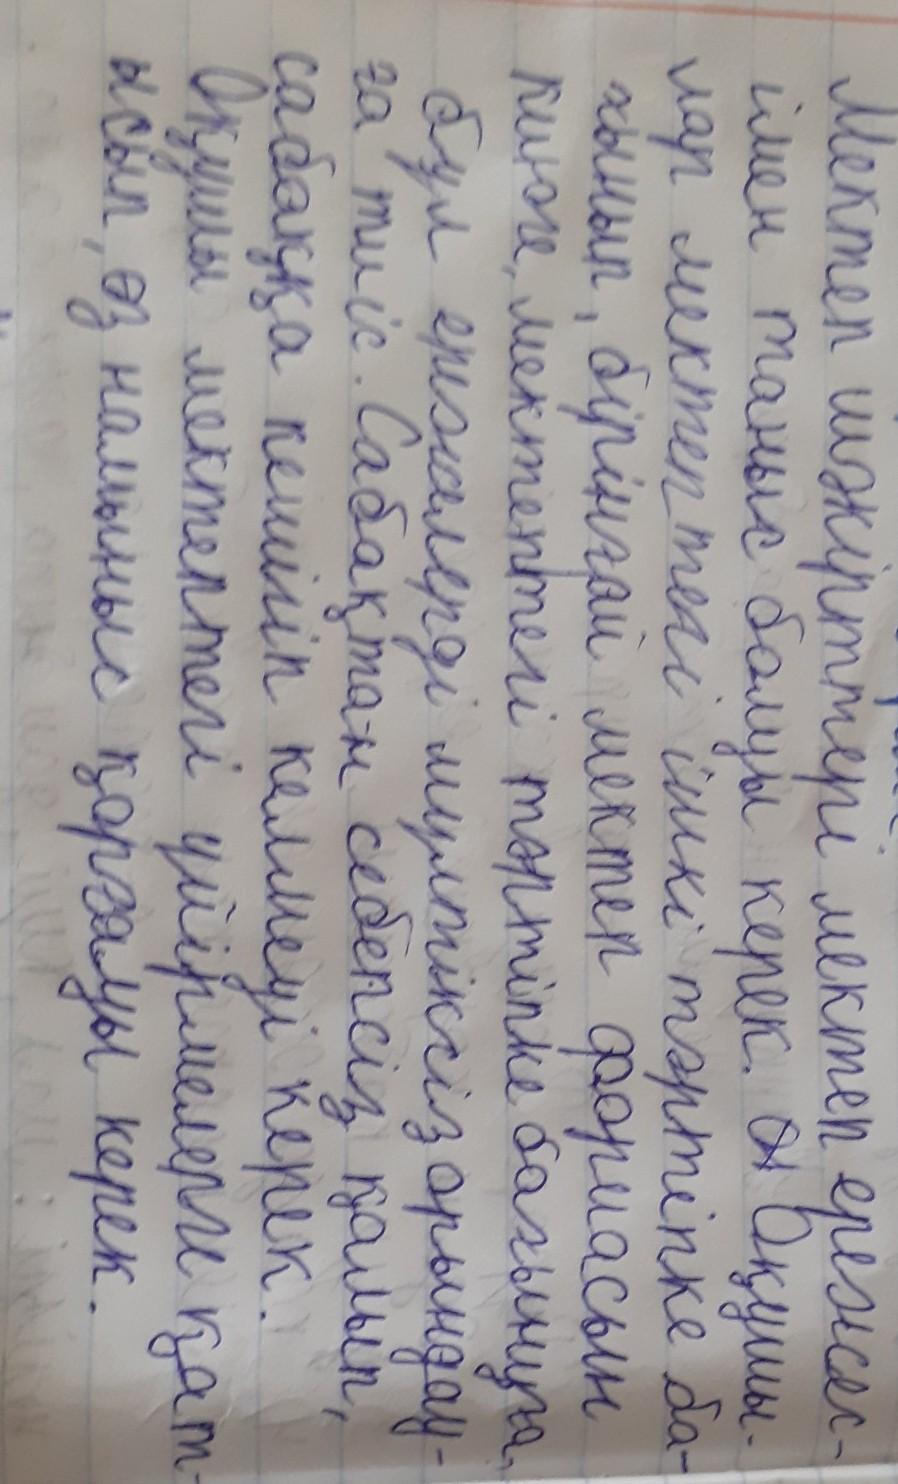 Мектеп шәкірттері мектеп ережес-
імен таныс болуы керек. Оқушы-
лар мектептегі ішкі тәртіпке ба-
ғынып, бірінғай мектеп формасын
киюге, мектептегі тәртіпке бағынуға,
бұл ережелерді мүлтіксіз орындау-
ға тиіс. Сабақтан себепсіз қалып,
сабаққа кешігіп келмеуі керек.
Оқушы мектептегі үйірмелерге қат-
ысып, өз намыныс қорғалуы керек.